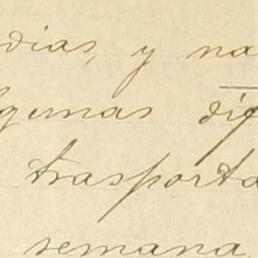 dias, y na
lgunas dif
trasporta
semana